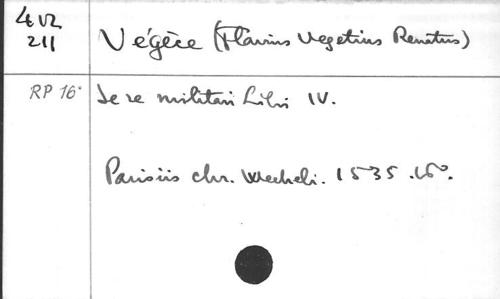 211
Végèce (Flavius Vegetius Renatus)
RP 16° De re militari Libri IV.
Parisiis chr. Wecheli. 1535. 16°.